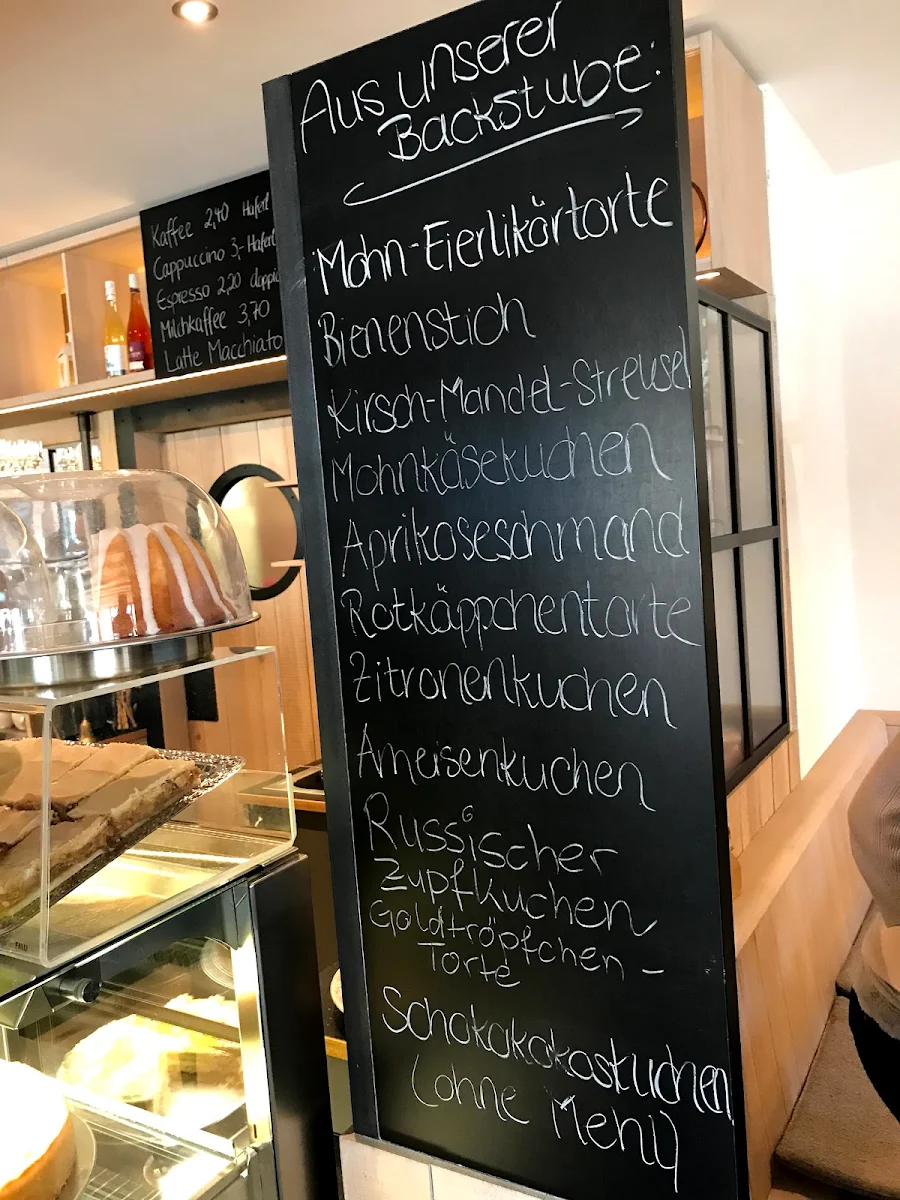 Aus unserer
Backstube:
Mohn-Eierlikörtorte
Bienenstich
Kirsch-Mandel-Streusel
Mohnkäsekuchen
Aprikoseschmand
Rotkäppchentorte
Zitronenkuchen
Ameisenkuchen
Russischer
Zupfkuchen
Goldtröpfchen-
Torte
Schokokokoskuchen
(ohne Mehl)
Kaffee 2,40 Haferl
Cappuccino 3,- Haferl
Espresso 2,20
Milchkaffee 3,70
Latte Macchiato